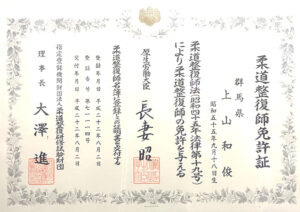 柔道整復師免許証
群馬県
上山和俊
昭和五十五年九月十八日生
柔道整復師法(昭和四十五年法律第十九号)
により柔道整復師の免許を与える
厚生労働大臣 長妻昭
柔道整復師名簿に登録したことの証明書を交付する
登録年月日 平成二十二年八月二日
登録番号 第七一一一四号
交付年月日 平成二十二年八月二日
指定登録機関財団法人柔道整復研修試験財団
理事長 大澤進